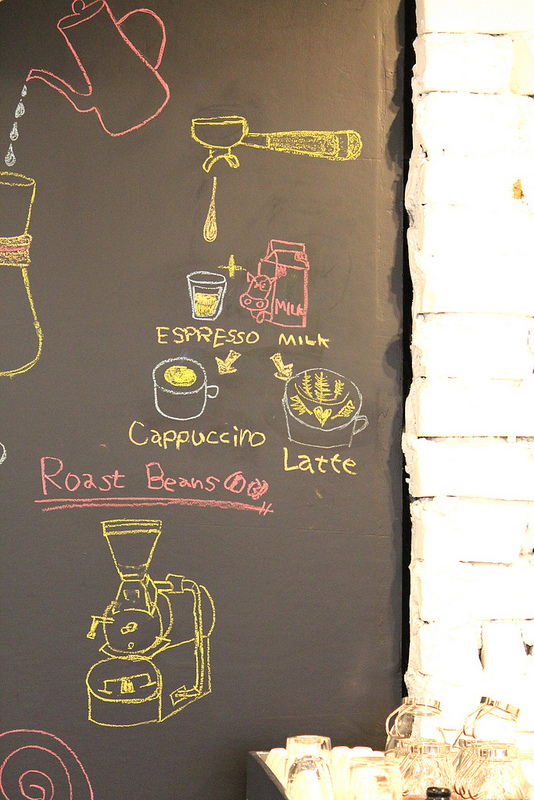 MILK
ESPRESSO MILK
Cappuccino
Latte
Roast Beans